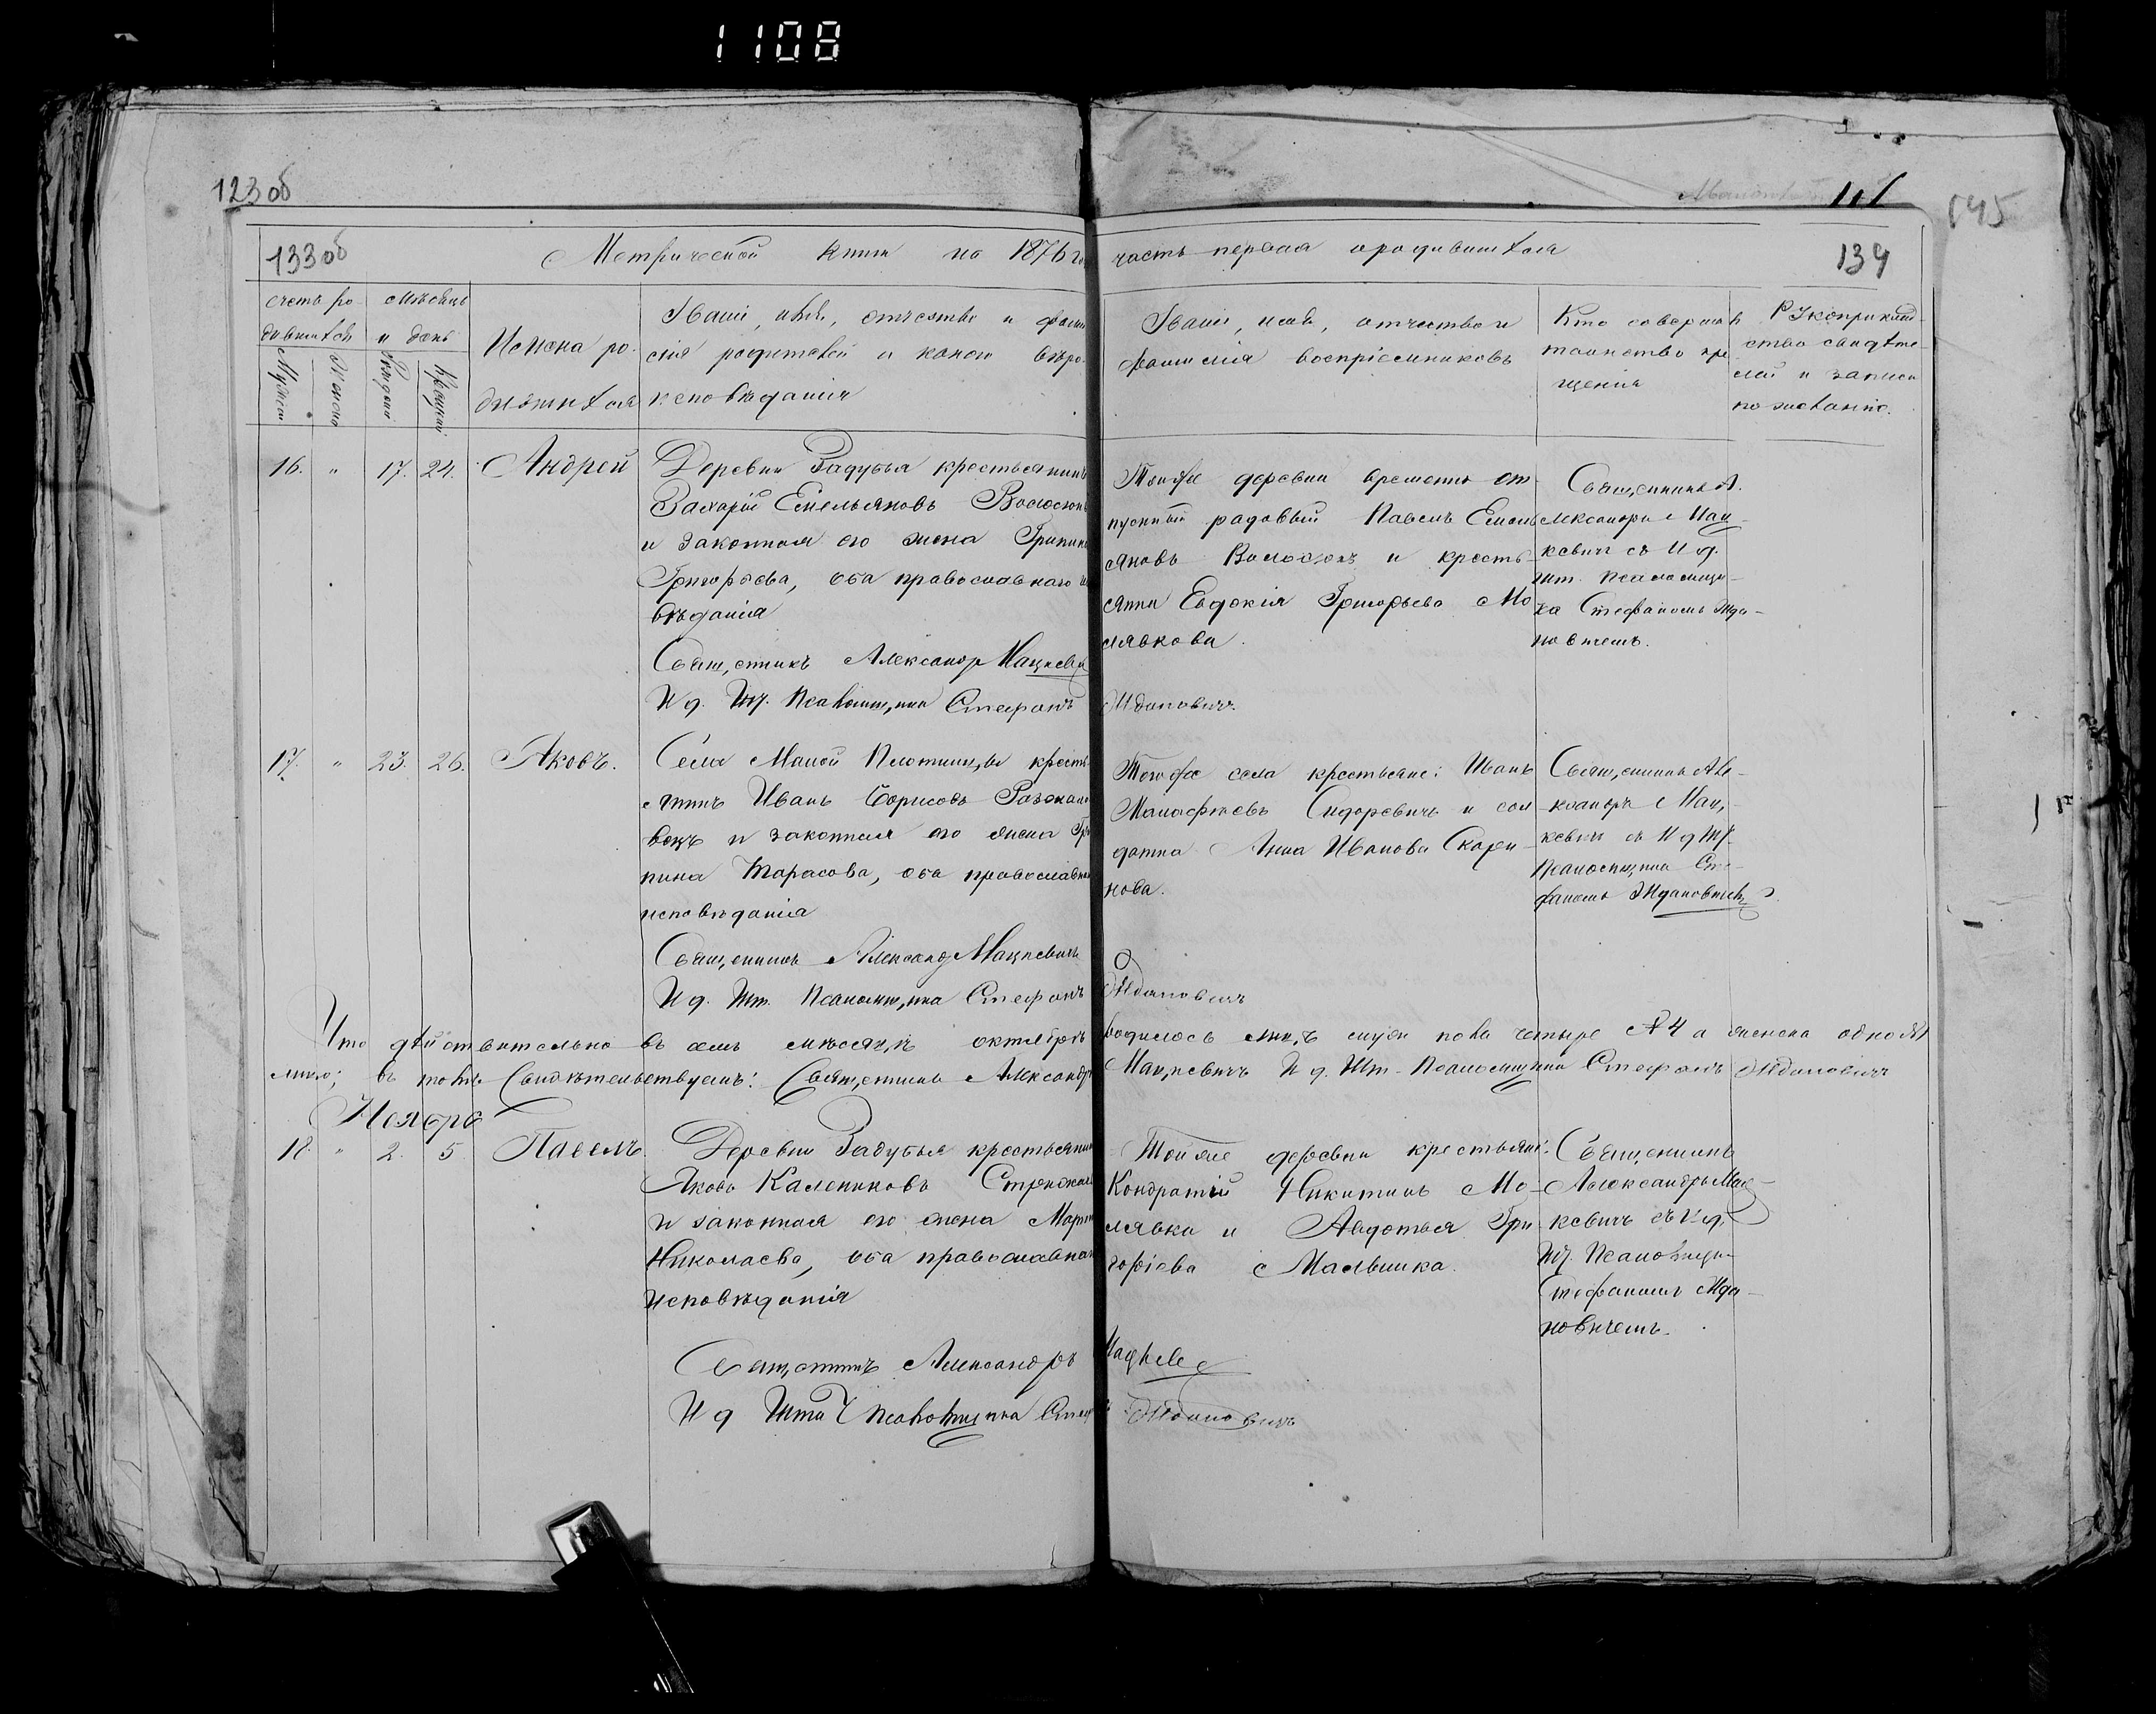 1108
123 об
145
133 об
Метрической книги на 1876 го часть первая о родившихся
134
счетъ ро-
дившихся
Мужеска
Женска
мѣсяцъ
и день
Рожденія
Крещенія
Имена ро-
дившихся
Званіе, имя, отчество и фами
лія родителей и какого вѣро-
исповѣданія
Званіе, имя, отчество и
фамилія воспріемниковъ
Кто совершалъ
таинство кре
щенія
Рукоприклад-
ство свидѣте-
лей и записи
по желанію.
16. " 17. 24. Андрей
Деревни Задубья крестьянинъ
Захарій Емельяновъ Волосюкъ
и законная его жена Грипина
Григорьева, оба православнаго и
вѣданія
Священникъ Александр Мацкевич
И д. Шт. Псаломщика Стефанъ Ждановичъ
Той же деревни временно от-
пускный рядовый Павелъ Емель
яновъ Волосюкъ и кресть-
янка Евдокія Григорьева Мо
лявкова.
Священникъ А.
лександръ Мац-
кевичъ съ И д.
шт. псаломщи-
ка Стефаномъ Жда-
новичемъ.
17. " 23. 26. Яковъ.
Села Малой Плотницы кресть
янинъ Иванъ Борисовъ
и законная его жена Гри
пина Тарасова, оба православна
исповѣданія
Священникъ Александр Мацкевичъ
И д. Шт. Псаломщика Стефанъ Ждановичъ
Того же села крестьяне: Иванъ
Сидоревичъ и сол
датка Анна Иванова Скари-
кова.
Священникъ Але-
ксандръ Мац-
кевичъ съ И д Шт.
Псаломщика Сте-
фаномъ Ждановичемъ
Что дѣйствительно въ семъ мѣсяцѣ октябрѣ родилось муж пола четыре № 4 а женска одно №1
въ томъ Свидѣтельствуемъ: Священникъ Александръ Мацкевичъ И д. Шт. Псаломщика Стефанъ Ждановичъ
Ноябрь
18. " 2. 5. Павелъ.
Деревни Задубья крестьянин
Яковъ Калениковъ
и законная его жена Март
Николаева, оба православнаг
исповѣданія
Священникъ Александръ Мацкев
И д Штат Псаломщика Стеф Ждановичъ
Той же деревни крестьяне:
Кондратій Никитинъ Мо-
лявка и Авдотья Гри
горіева Малявинка.
Священникъ
Александръ Мац-
кевичъ съ И д.
Шт. Псаломщи-
Стефаномъ Жда-
новичемъ.